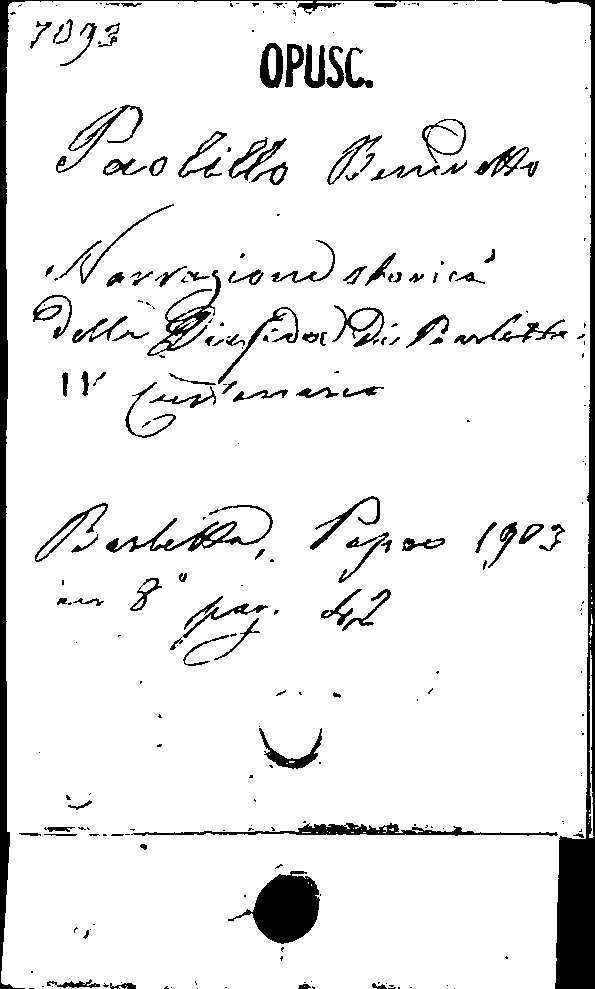 7093
OPUSC.
Paolillo Benedetto
Narrazione storica
della Disfida di Barletta.
IV Centenario
Barletta, 1903
in 8° pag. 42